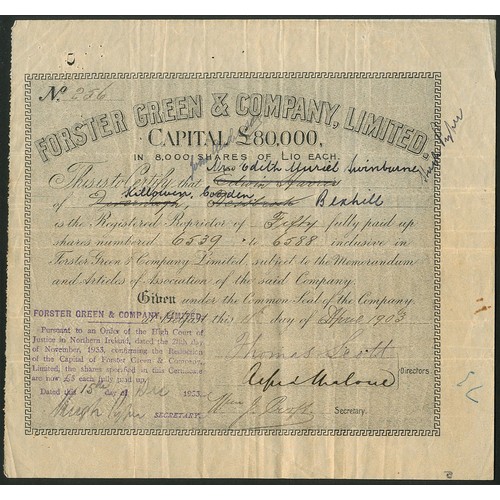 No. 256
FORSTER GREEN & COMPANY, LIMITED.
CAPITAL £80,000,
IN 8,000 SHARES OF £10 EACH.
Mrs Edith Muriel Swinburne
This is to Certify that Edwin
Killowen, Cooden
of Bexhill
is the Registered Proprietor of Fifty fully paid up
shares numbered 6539 to 6588 inclusive in
Forster Green & Company Limited, subject to the Memorandum
and Articles of Association of the said Company.
Given under the Common Seal of the Company
at Belfast this day of April 1903
FORSTER GREEN & COMPANY, LIMITED
Pursuant to an Order of the High Court of
Justice in Northern Ireland, dated the 29th day
of November, 1933, confirming the Reduction
of the Capital of Forster Green & Company,
Limited, the shares specified in this Certificate
are now £5 each fully paid up.
Dated this 15th day of Dec 1933.
Hugh Pyper SECRETARY.
Thomas Scott
Alfred Malone
Directors.
Wm J.
Secretary.